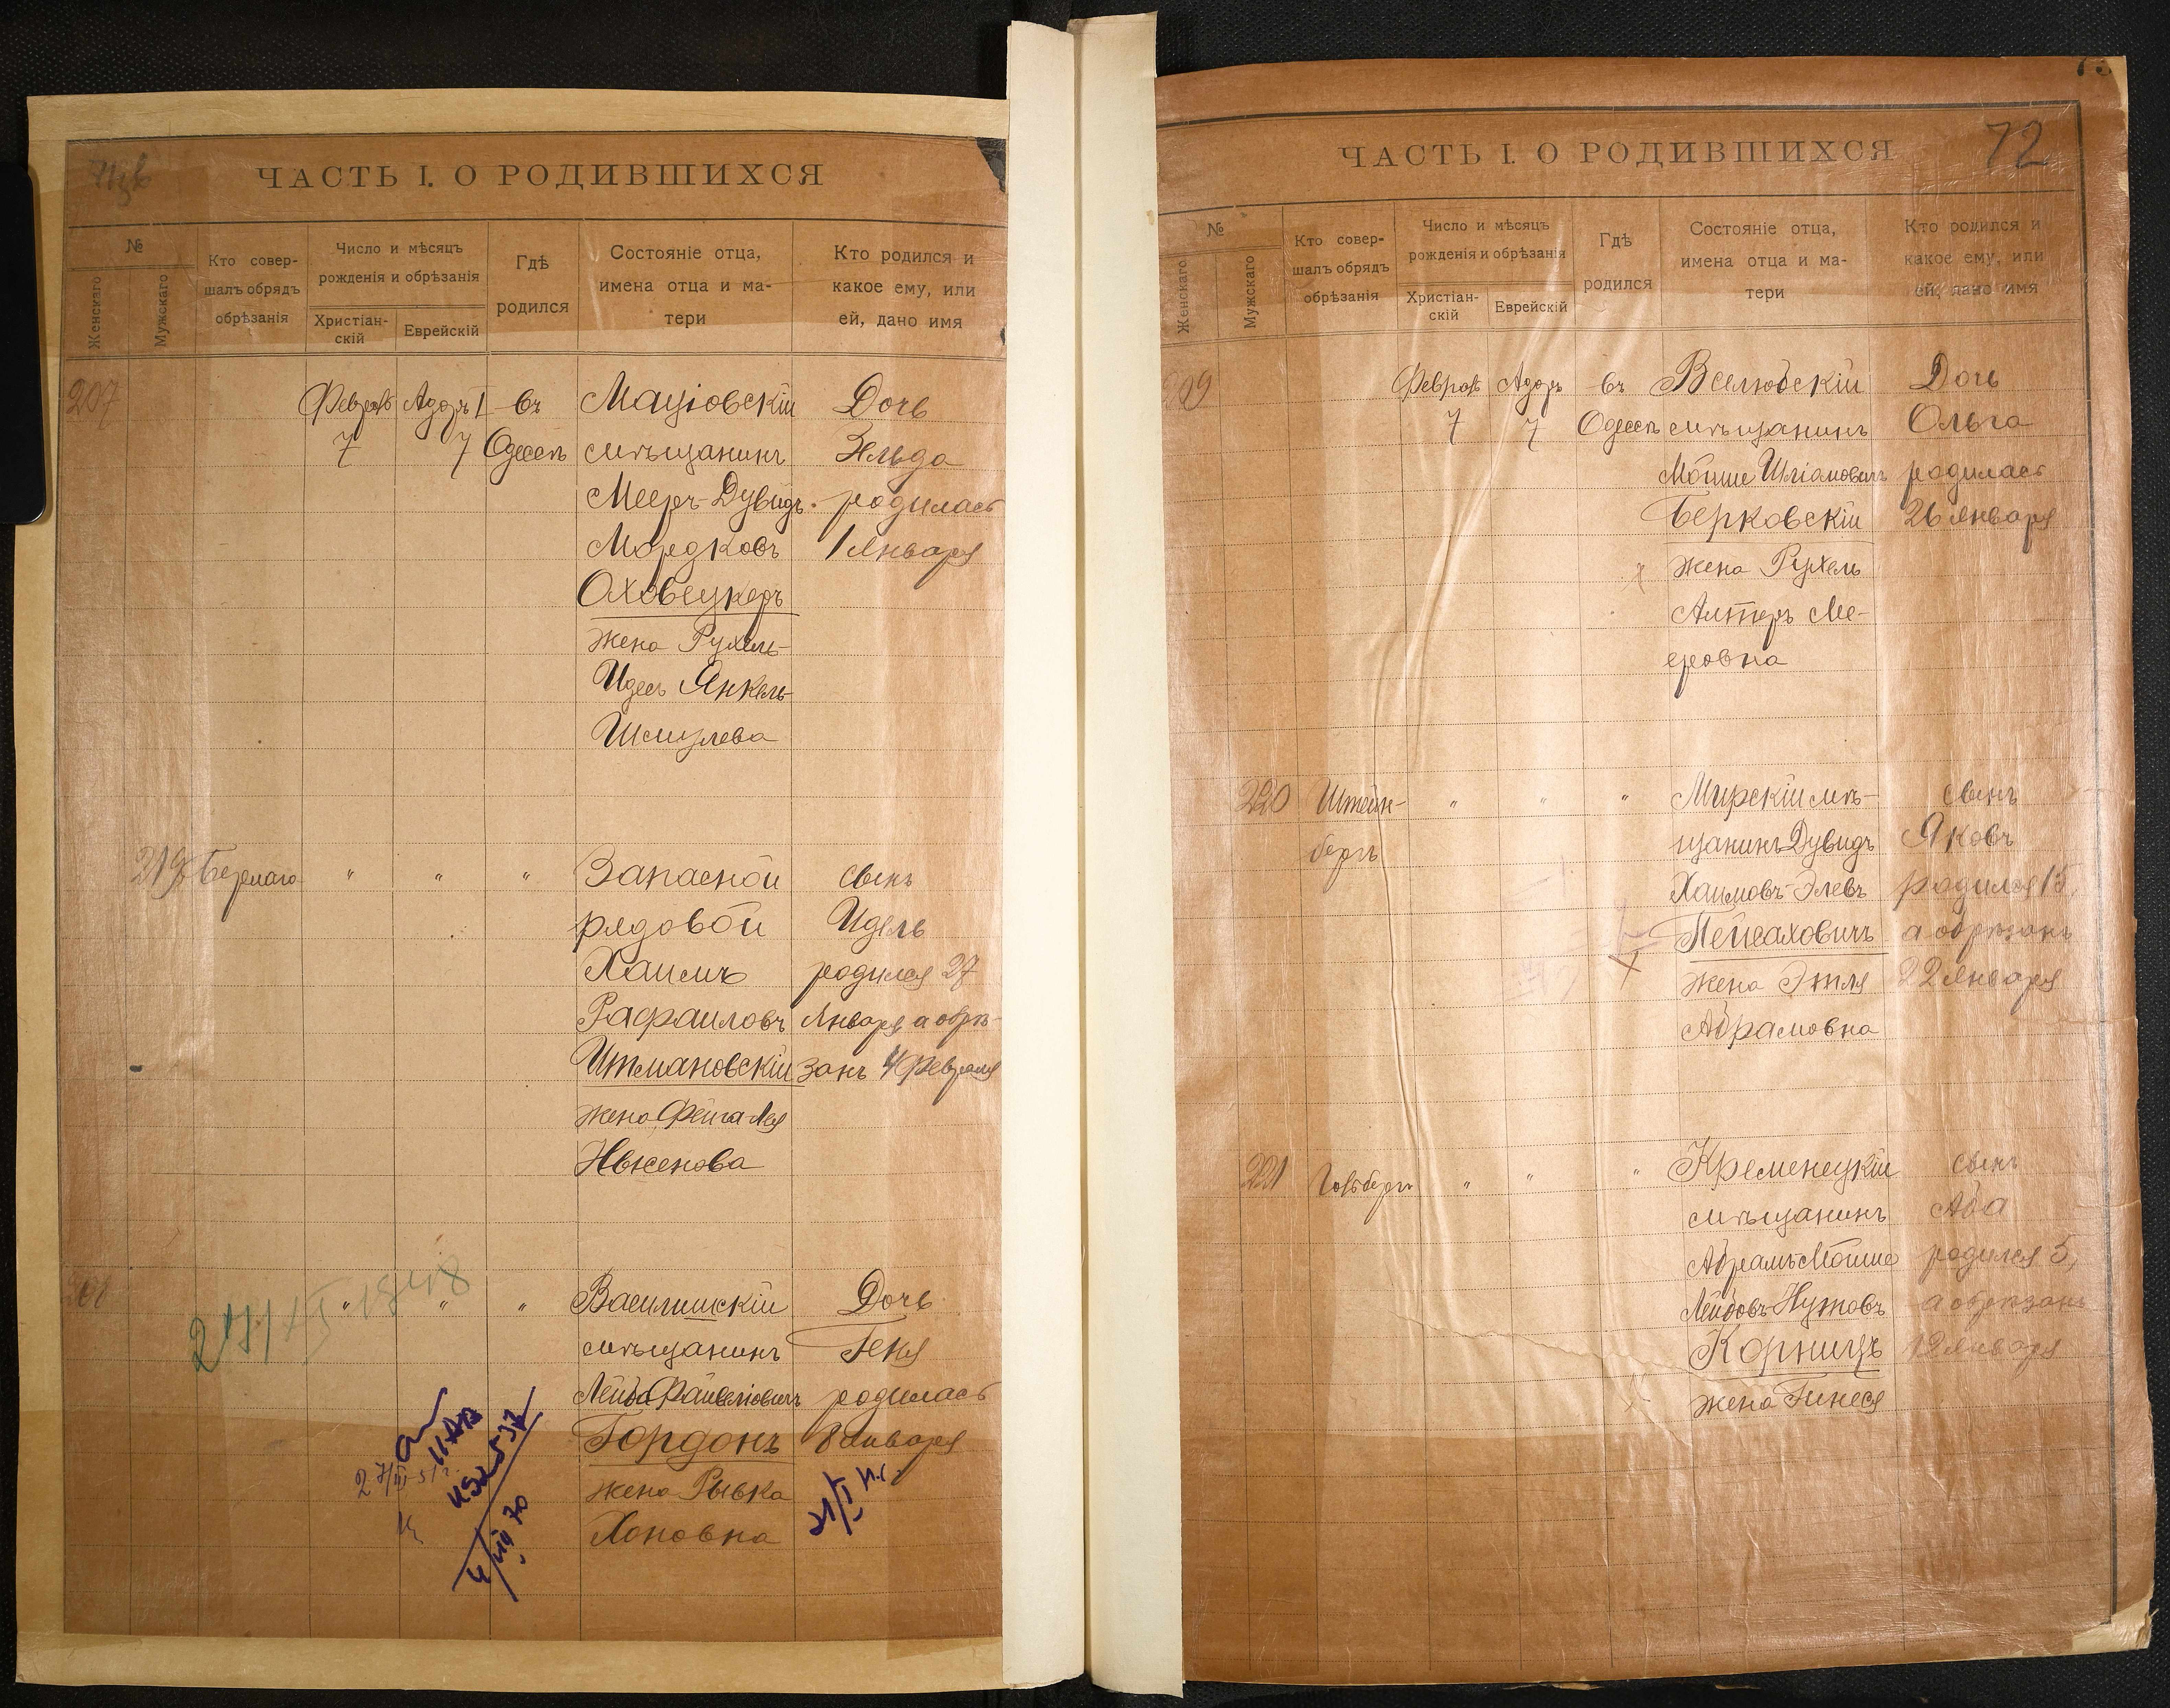 ЧАСТЬ I. О РОДИВШИХСЯ
№
Женскаго
Мужскаго
Кто совер-
шалъ обрядъ
обрѣзанія
Число и мѣсяцъ
рожденія и обрѣзанія
Христіан-
скій
Еврейскій
Гдѣ
родился
Состояніе отца,
имена отца и ма-
тери
Кто родился и
какое ему, или
ей, дано имя
207
Февраль Адаръ I въ
7 7 Одессѣ
Маціовскій
мѣщанинъ
Мееръ-Дувидъ
Мордковъ
Оховецкеръ
жена Рухель-
Идесъ Янкель-
Шмулева
Дочь
Зельда
родилась
1 Января
219 Берлаго " " "
Запасной
рядовой
Хаимъ
Рафаиловъ
Итмановскій
жена Фейга Лея
Нысенова
сынъ
Идель
родился 27
Января а обрѣ-
занъ 4 Февраля
208 " " "
Василишскій
мѣщанинъ
Лейба Файвеліовичъ
Гордонъ
жена Рывка
Хоновна
Дочь
Геня
родилась
8 Января
ЧАСТЬ I. О РОДИВШИХСЯ
72
№
Женскаго
Мужскаго
Кто совер-
шалъ обрядъ
обрѣзанія
Число и мѣсяцъ
рожденія и обрѣзанія
Христіан-
скій
Еврейскій
Гдѣ
родился
Состояніе отца,
имена отца и ма-
тери
Кто родился и
какое ему, или
ей, дано имя
209
Февраль Адаръ въ
7 7 Одессѣ
Вселюбскій
мѣщанинъ
Мойше Шліомовичъ
Берковскій
жена Рухель
Алтеръ Ме-
еровна
Дочь
Ольга
родилась
26 Января
220 Штейн-
бергъ
" " "
Мирскій мѣ-
щанинъ Дувидъ
Хаимовъ-Элевъ
Пейсаховичъ
жена Этля
Абрамовна
сынъ
Яковъ
родился 15,
а обрѣзанъ
22 Января
221 " " "
Кременецкій
мѣщанинъ
Абрамъ Мойше
Лейбовъ Нутовъ
Корницъ
жена Гинеся
сынъ
Аба
родился 5,
а обрѣзанъ
12 Января